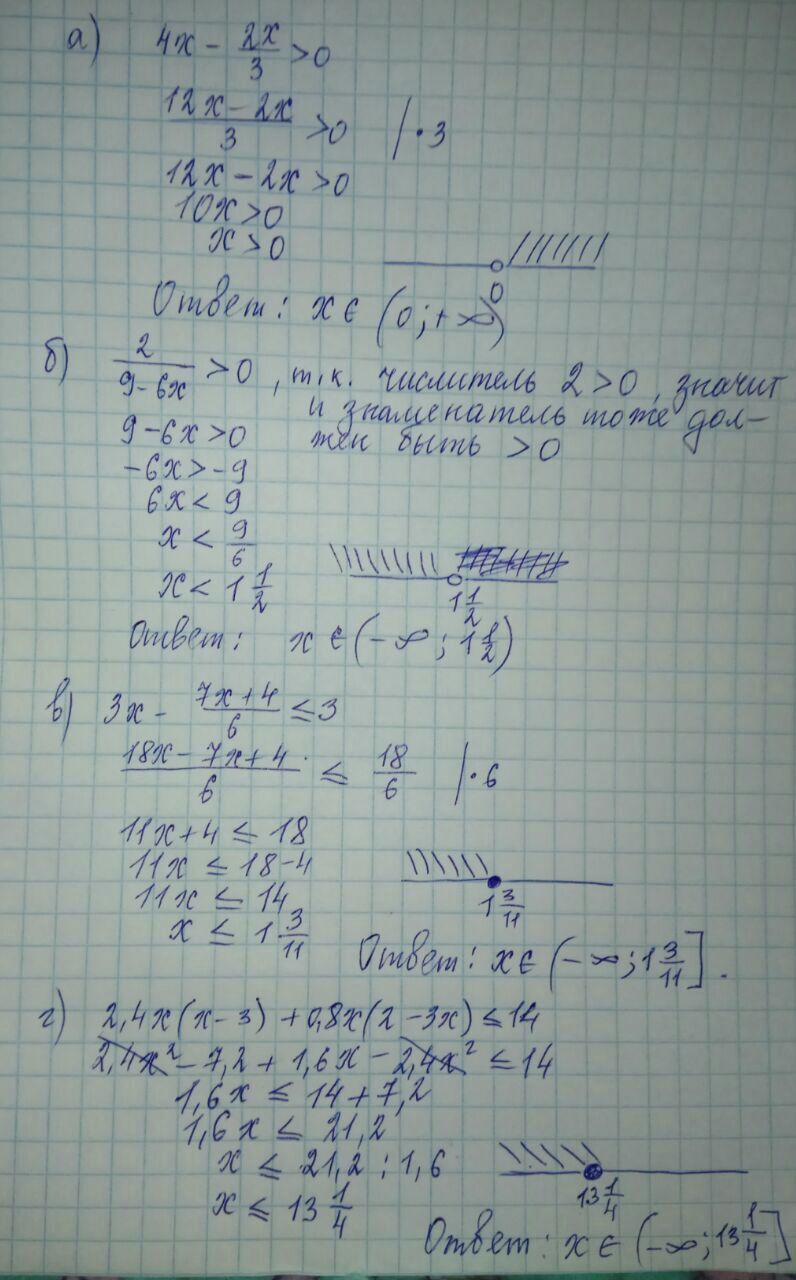 а) 4x - 2x/3 > 0
(12x - 2x)/3 > 0 | · 3
12x - 2x > 0
10x > 0
x > 0
0
Ответ: x ∈ (0; +∞)
б) 2/(9-6x) > 0, т.к. числитель 2 > 0, значит
и знаменатель тоже дол-
жен быть > 0
9 - 6x > 0
-6x > -9
6x < 9
x < 9/6
x < 1 1/2
1 1/2
Ответ: x ∈ (-∞; 1 1/2)
в) 3x - (7x+4)/6 ≤ 3
(18x - 7x + 4)/6 ≤ 18/6 | · 6
11x + 4 ≤ 18
11x ≤ 18 - 4
11x ≤ 14
x ≤ 1 3/11
1 3/11
Ответ: x ∈ (-∞; 1 3/11].
г) 2,4x(x-3) + 0,8x(2-3x) ≤ 14
2,4x² - 7,2 + 1,6x - 2,4x² ≤ 14
1,6x ≤ 14 + 7,2
1,6x ≤ 21,2
x ≤ 21,2 : 1,6
x ≤ 13 1/4
13 1/4
Ответ: x ∈ (-∞; 13 1/4]